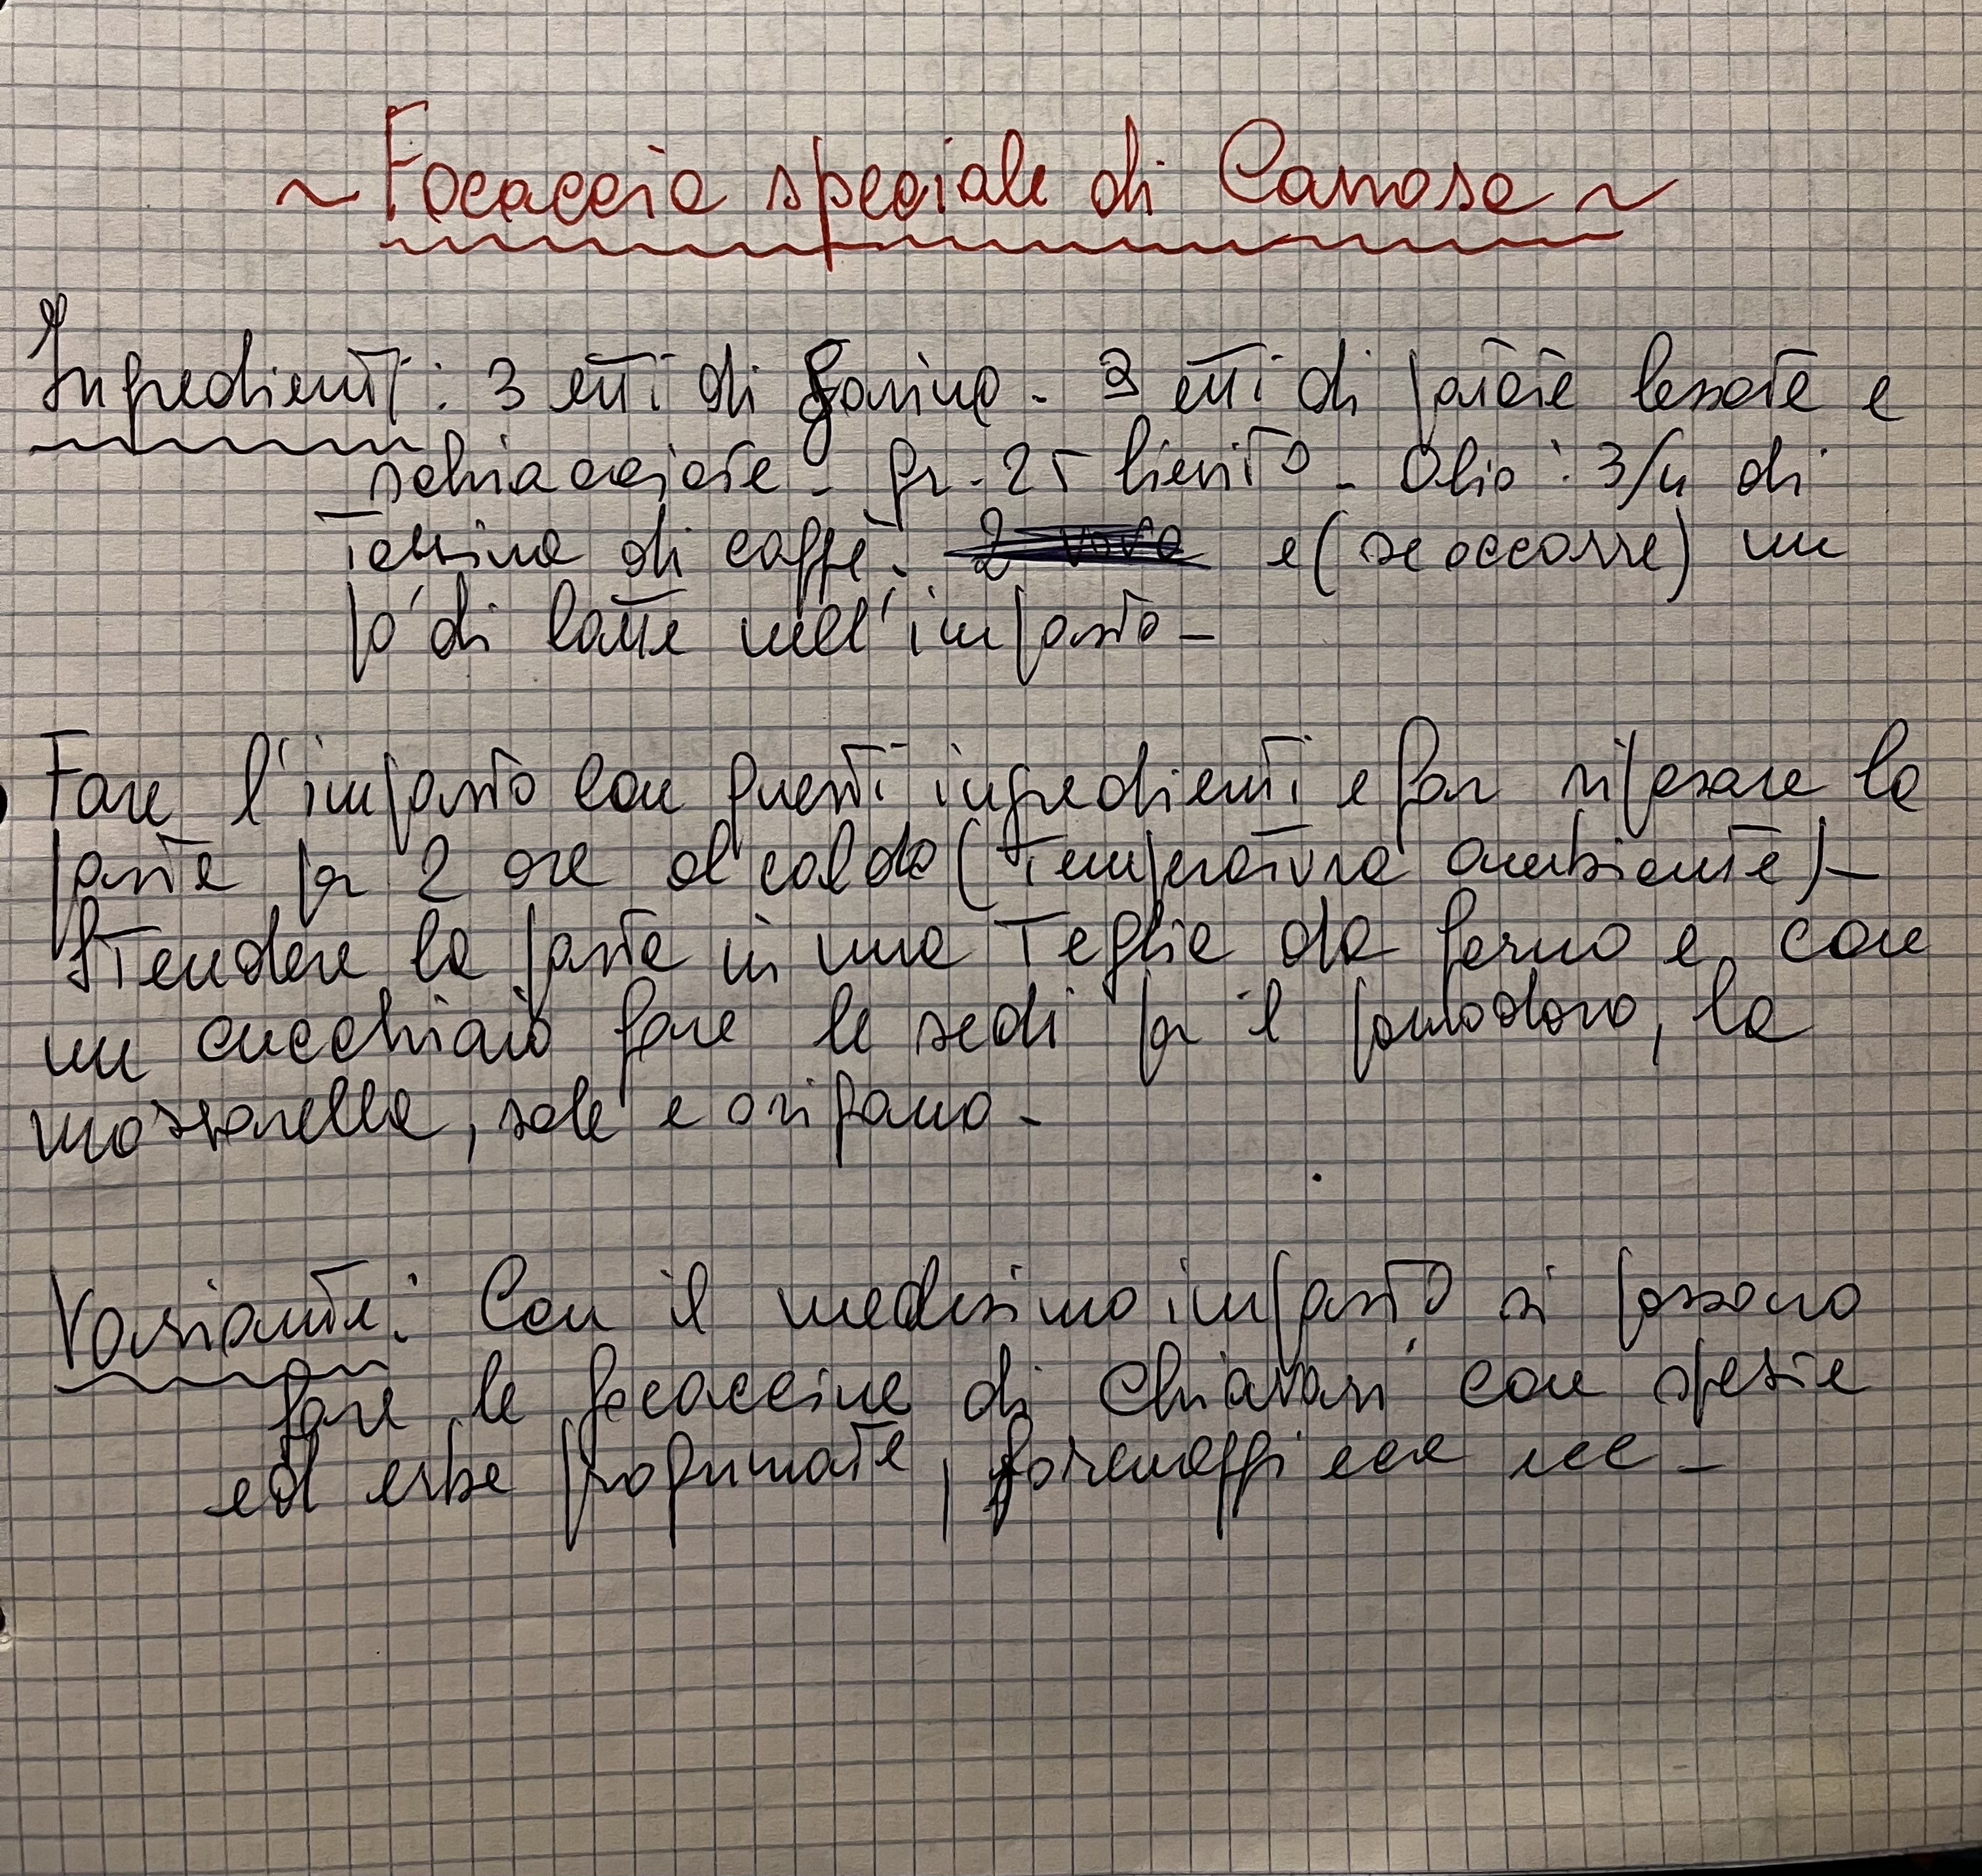 ~ Focaccia speciale di Canosa ~
Ingredienti: 3 etti di farina - 3 etti di patate lessate e
schiacciate - gr. 25 lievito - Olio: 3/4 di
tazzina di caffè. 2 uova e (se occorre) un
pò di latte nell'impasto -
Fare l'impasto con questi ingredienti e far riposare la
pasta per 2 ore al caldo (temperatura ambiente) -
Stendere la pasta in una teglia da forno e, con
un cucchiaio fare le sedi per il pomodoro, la
mozzarella, sale e origano -
Variante: Con il medesimo impasto si possono
fare le focaccine di Chiavari con spezie
ed erbe profumate, formaggi ecc ecc -